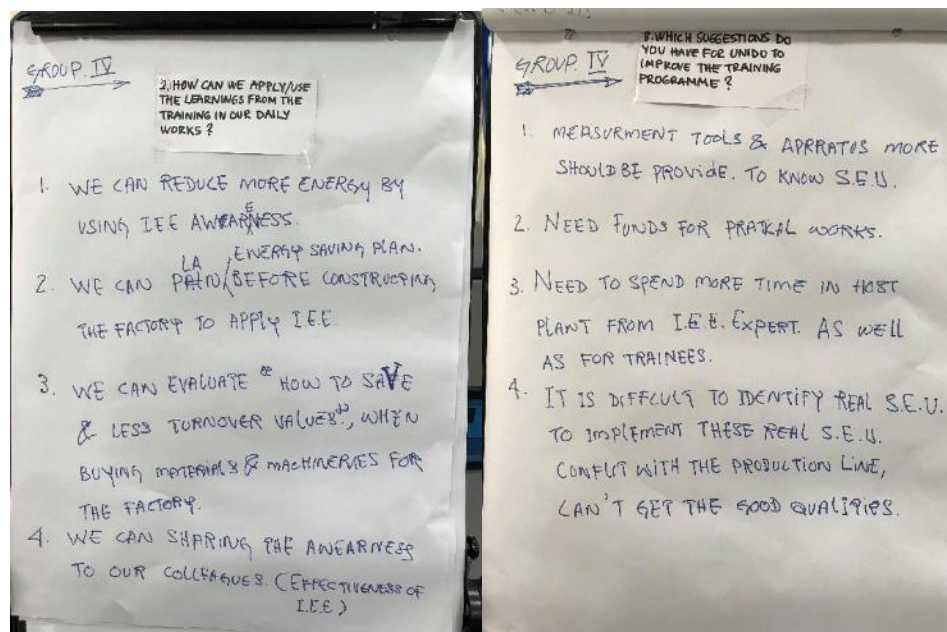 GROUP. IV
2. HOW CAN WE APPLY/USE
THE LEARNINGS FROM THE
TRAINING IN OUR DAILY
WORKS ?
1. WE CAN REDUCE MORE ENERGY BY
USING IEE AWEARENESS.
ENERGY SAVING PLAN.
2. WE CAN PLAN / BEFORE CONSTRUCTING
THE FACTORY TO APPLY I.E.E.
3. WE CAN EVALUATE " HOW TO SAVE
& LESS TURNOVER VALUES", WHEN
BUYING MATERIALS & MACHINERIES FOR
THE FACTORY.
4. WE CAN SHARING THE AWEARNESS
TO OUR COLLEAGUES. (EFFECTIVENESS OF
I.E.E)
GROUP. IV
8. WHICH SUGGESTIONS DO
YOU HAVE FOR UNIDO TO
IMPROVE THE TRAINING
PROGRAMME ?
1. MEASURMENT TOOLS & APRRATUS MORE
SHOULD BE PROVIDE. TO KNOW S.E.U.
2. NEED FUNDS FOR PRATKAL WORKS.
3. NEED TO SPEND MORE TIME IN HOST
PLANT FROM I.E.E. EXPERT. AS WELL
AS FOR TRAINEES.
4. IT IS DIFFCULT TO IDENTIFY REAL S.E.U.
TO IMPLEMENT THESE REAL S.E.U.
CONFLIT WITH THE PRODUCTION LINE,
CAN'T GET THE GOOD QUALITIES.